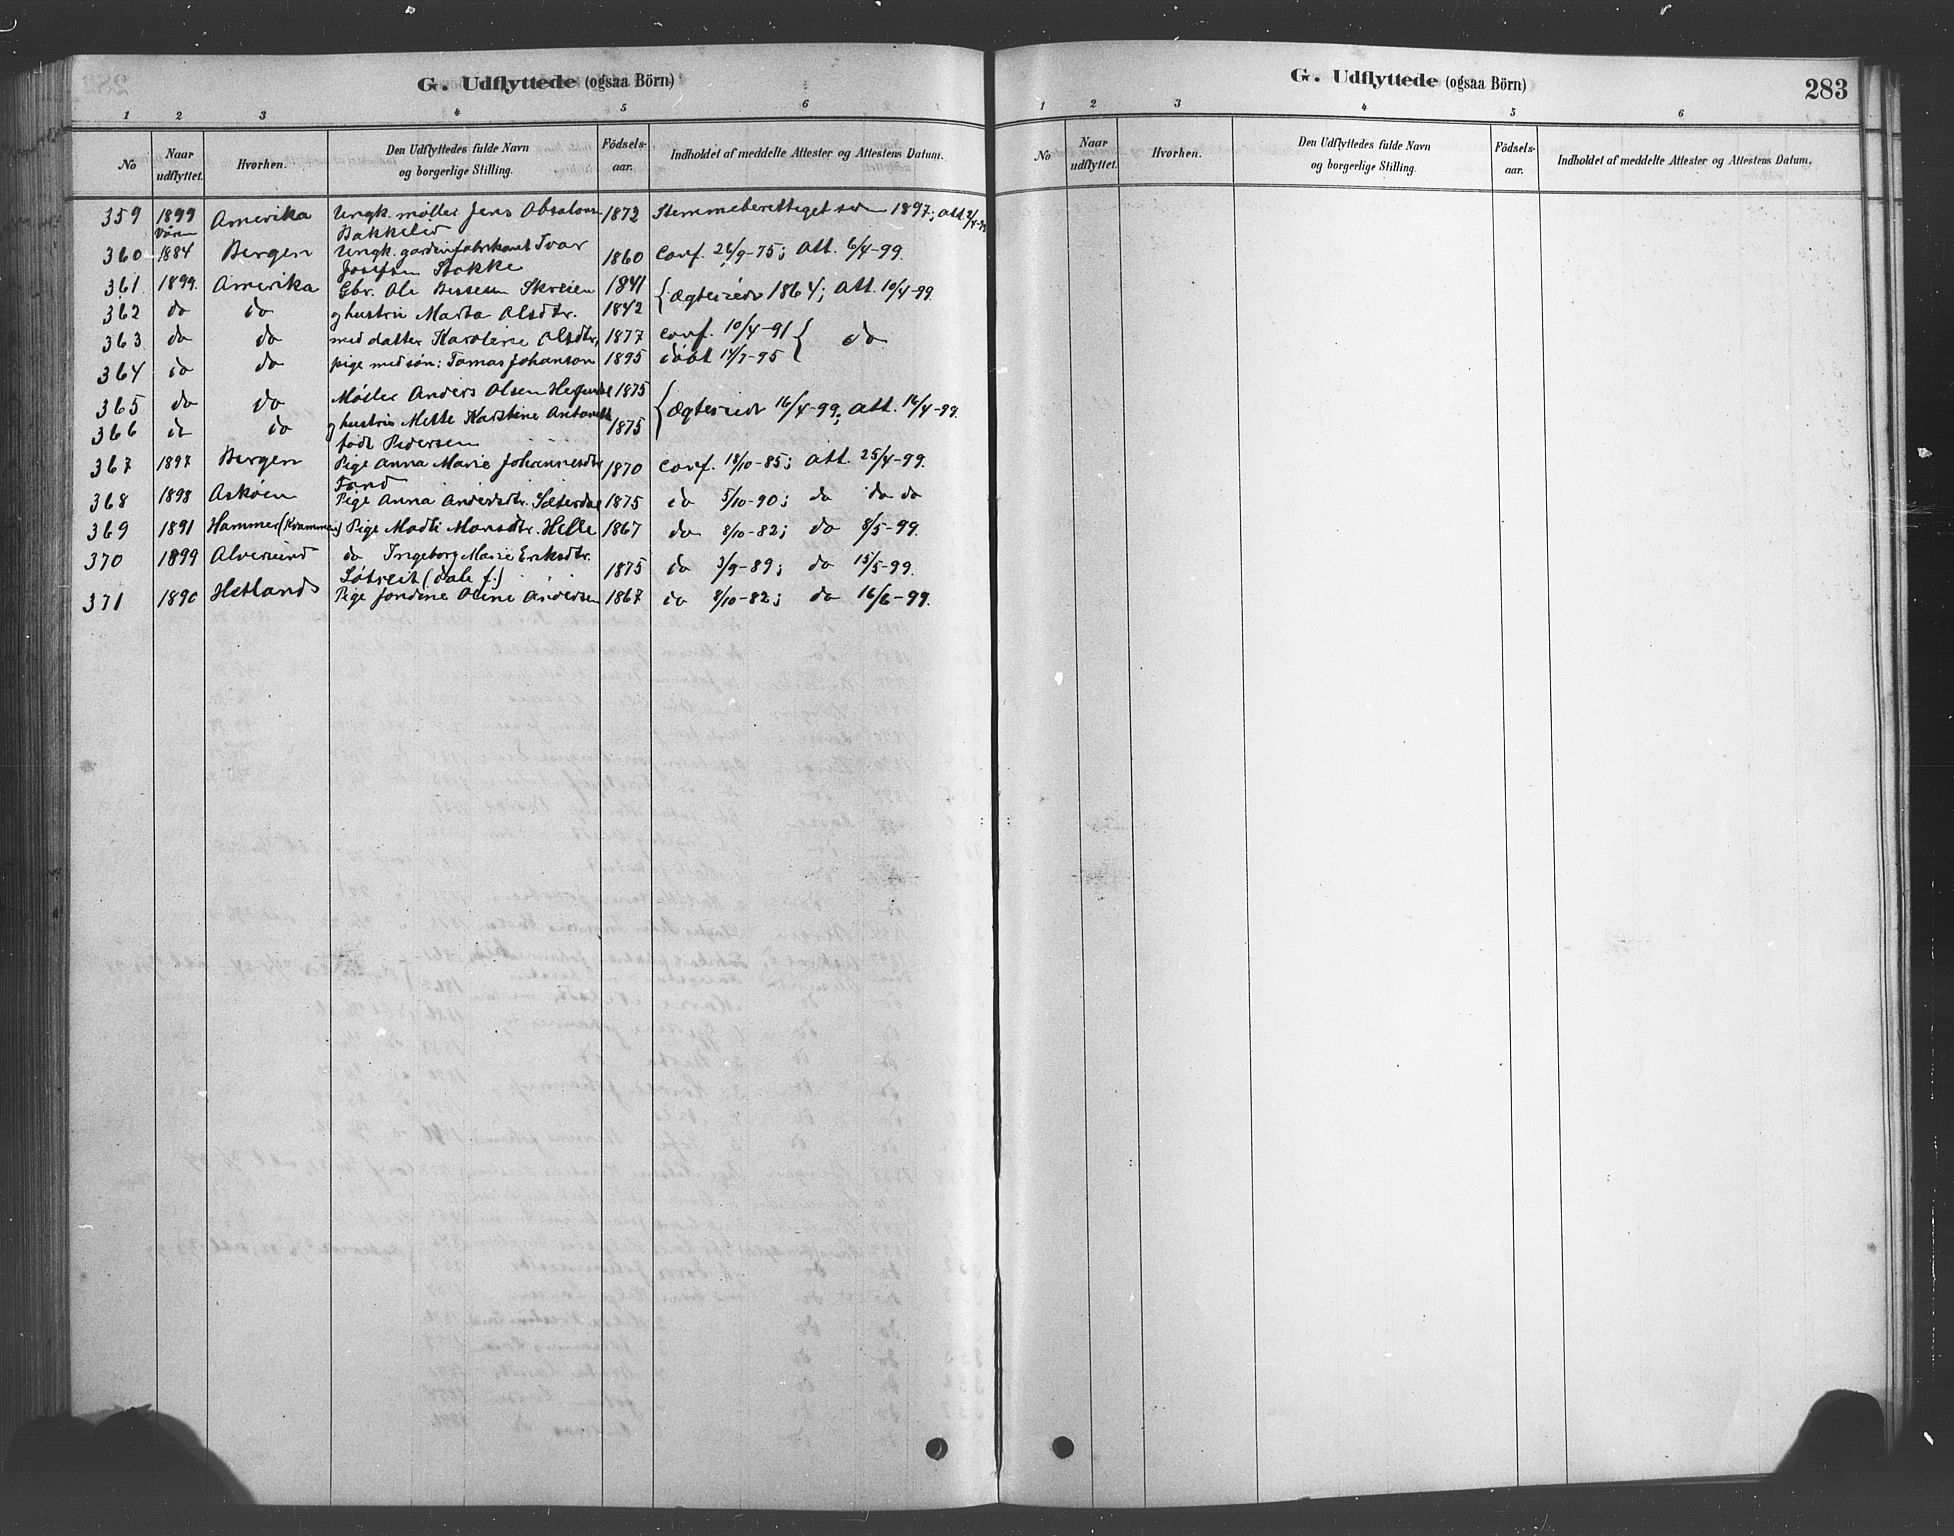 G. Udflyttede (ogsaa Börn)
1 2 3 4 5 6
No Naar udflyttet. Hvorhen. Den Udflyttedes fulde Navn og borgerlige Stilling. Födsels-aar. Indholdet af meddelte Attester og Attestens Datum.
359 1899 Amerika Ungk. møller Jens Absalons 1872 Stemmeberettiget sen 1897; att.
Våren Bakkelid
360 1884 Bergen Ungk. gardinfabrikant Ivar 1860 Conf. 26/9-75; att. 6/4-99.
Josefsen Stokke
361 1899. Amerika Gbr. Ole Skreien 1841 { Ægteviede 1864; att. 10/4-99.
362 do do og hustru Marta Olsdtr. 1842
363 do do med datter Karoline Olsdtr, 1877 conf. 10/4-91 { do
364 do do pige med søn: Tomas Johanson 1895 døbt 14/7-95
365 do do Møller Anders Olsen 1875 { Ægteviede 16/4-99; att. 16/4-99.
366 do do og hustru Mette Karstine 1875
født Pedersen
367 1897 Bergen Pige Anna Marie Johannesdtr 1870 Conf. 18/10-85; att. 25/4-99.
368 1898 Askøen Pige Anna Andersdtr. Sæterdal 1875 do 5/10-90; do do do
369 1891 Hammer Pige Madli Monsdtr. Helle 1867 do 8/10-82; do 8/5-99.
370 1899 Alversund do Ingeborg Marie Eriksdtr. 1875 do 3/9-89; do 15/5-99.
Søtveit (dale f.)
371 1890 Hetlands Pige Jondine Oline Andersen 1867 do 8/10-82; do 16/6-99.
G. Udflyttede (ogsaa Börn) 283
1 2 3 4 5 6
No Naar udflyttet. Hvorhen. Den Udflyttedes fulde Navn og borgerlige Stilling. Födsels-aar. Indholdet af meddelte Attester og Attestens Datum.